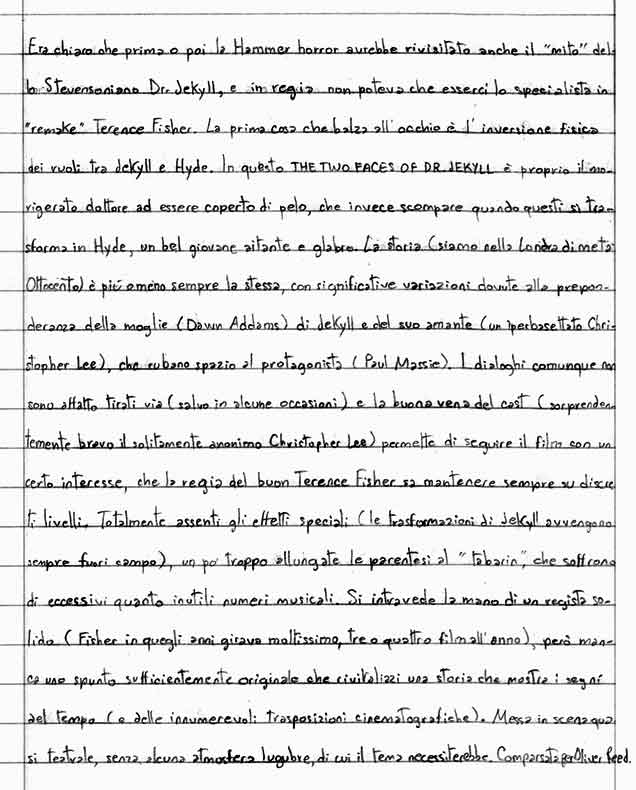 Era chiaro che prima o poi la Hammer horror avrebbe rivisitato anche il "mito" del-
lo Stevensoniano Dr. Jekyll, e in regia non poteva che esserci lo specialista in
"remake" Terence Fisher. La prima cosa che balza all'occhio è l'inversione fisica
dei ruoli tra Jekyll e Hyde. In questo THE TWO FACES OF DR. JEKYLL è proprio il mo-
rigerato dottore ad essere coperto di pelo, che invece scompare quando questi si tra-
sforma in Hyde, un bel giovane aitante e glabro. La storia (siamo nella Londra di metà
Ottocento) è più o meno sempre la stessa, con significative variazioni dovute alla prepon-
deranza della moglie (Dawn Addams) di Jekyll e del suo amante (un iperbasettato Chri-
stopher Lee), che rubano spazio al protagonista (Paul Massie). I dialoghi comunque non
sono affatto tirati via (salvo in alcune occasioni) e la buona vena del cast (sorprenden-
temente bravo il solitamente anonimo Christopher Lee) permette di seguire il film con un
certo interesse, che la regia del buon Terence Fisher sa mantenere sempre su discre
ti livelli. Totalmente assenti gli effetti speciali (le trasformazioni di Jekyll avvengono
sempre fuori campo), un po' troppo allungate le parentesi al "tabarin", che soffrono
di eccessivi quanto inutili numeri musicali. Si intravede la mano di un regista so-
lido (Fisher in quegli anni girava moltissimo, tre o quattro film all'anno), però man-
ca uno spunto sufficientemente originale che rivitalizzi una storia che mostra i segni
del tempo (e delle innumerevoli trasposizioni cinematografiche). Messa in scena qua
si teatrale, senza alcuna atmosfera lugubre, di cui il tema necessiterebbe. Comparsata per Oliver Reed.